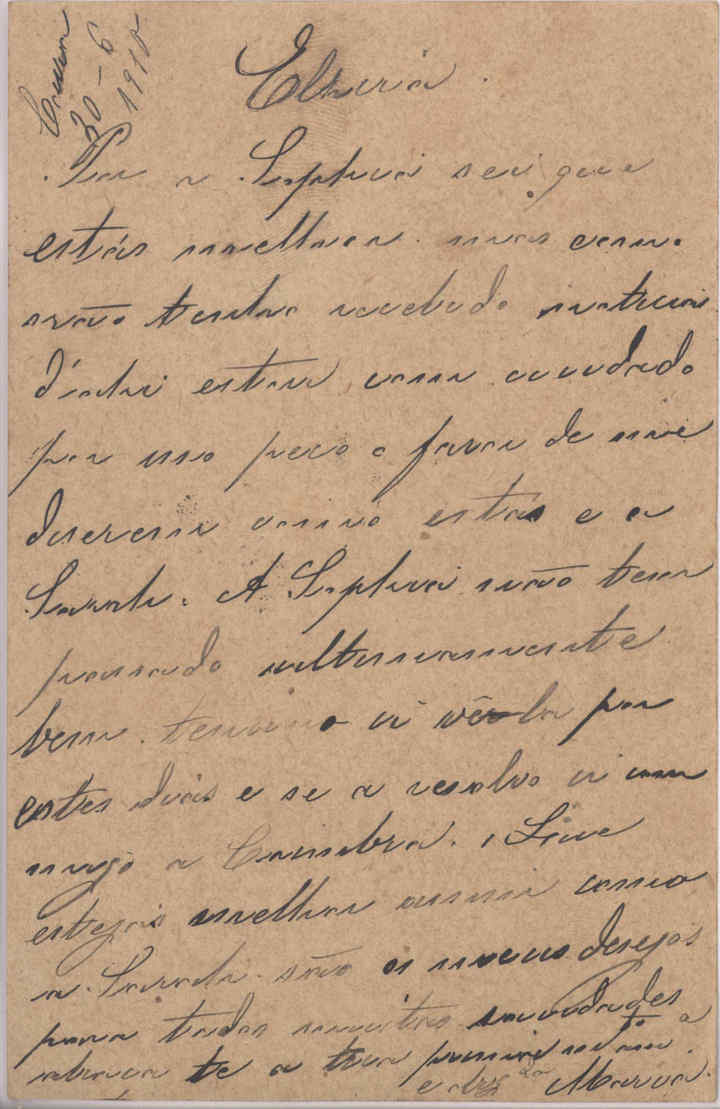 30-6
1910
Elzira.
Por a Sophia sei que
estás melhor mas como
não tenho recebido noticias
d'ahi estou com cuidado
por isso peço o favor de me
dizerem como estás e a
Sarah. A Sophia não tem
passado ultimamente
bem. vê-la por
estes dias e se a resolvo ir com
migo a Coimbra. Que
estejas melhor assim como
a Sarah são os meus desejos
para todos muitas saudades
abraça te a tua prima m.to a
Maria.